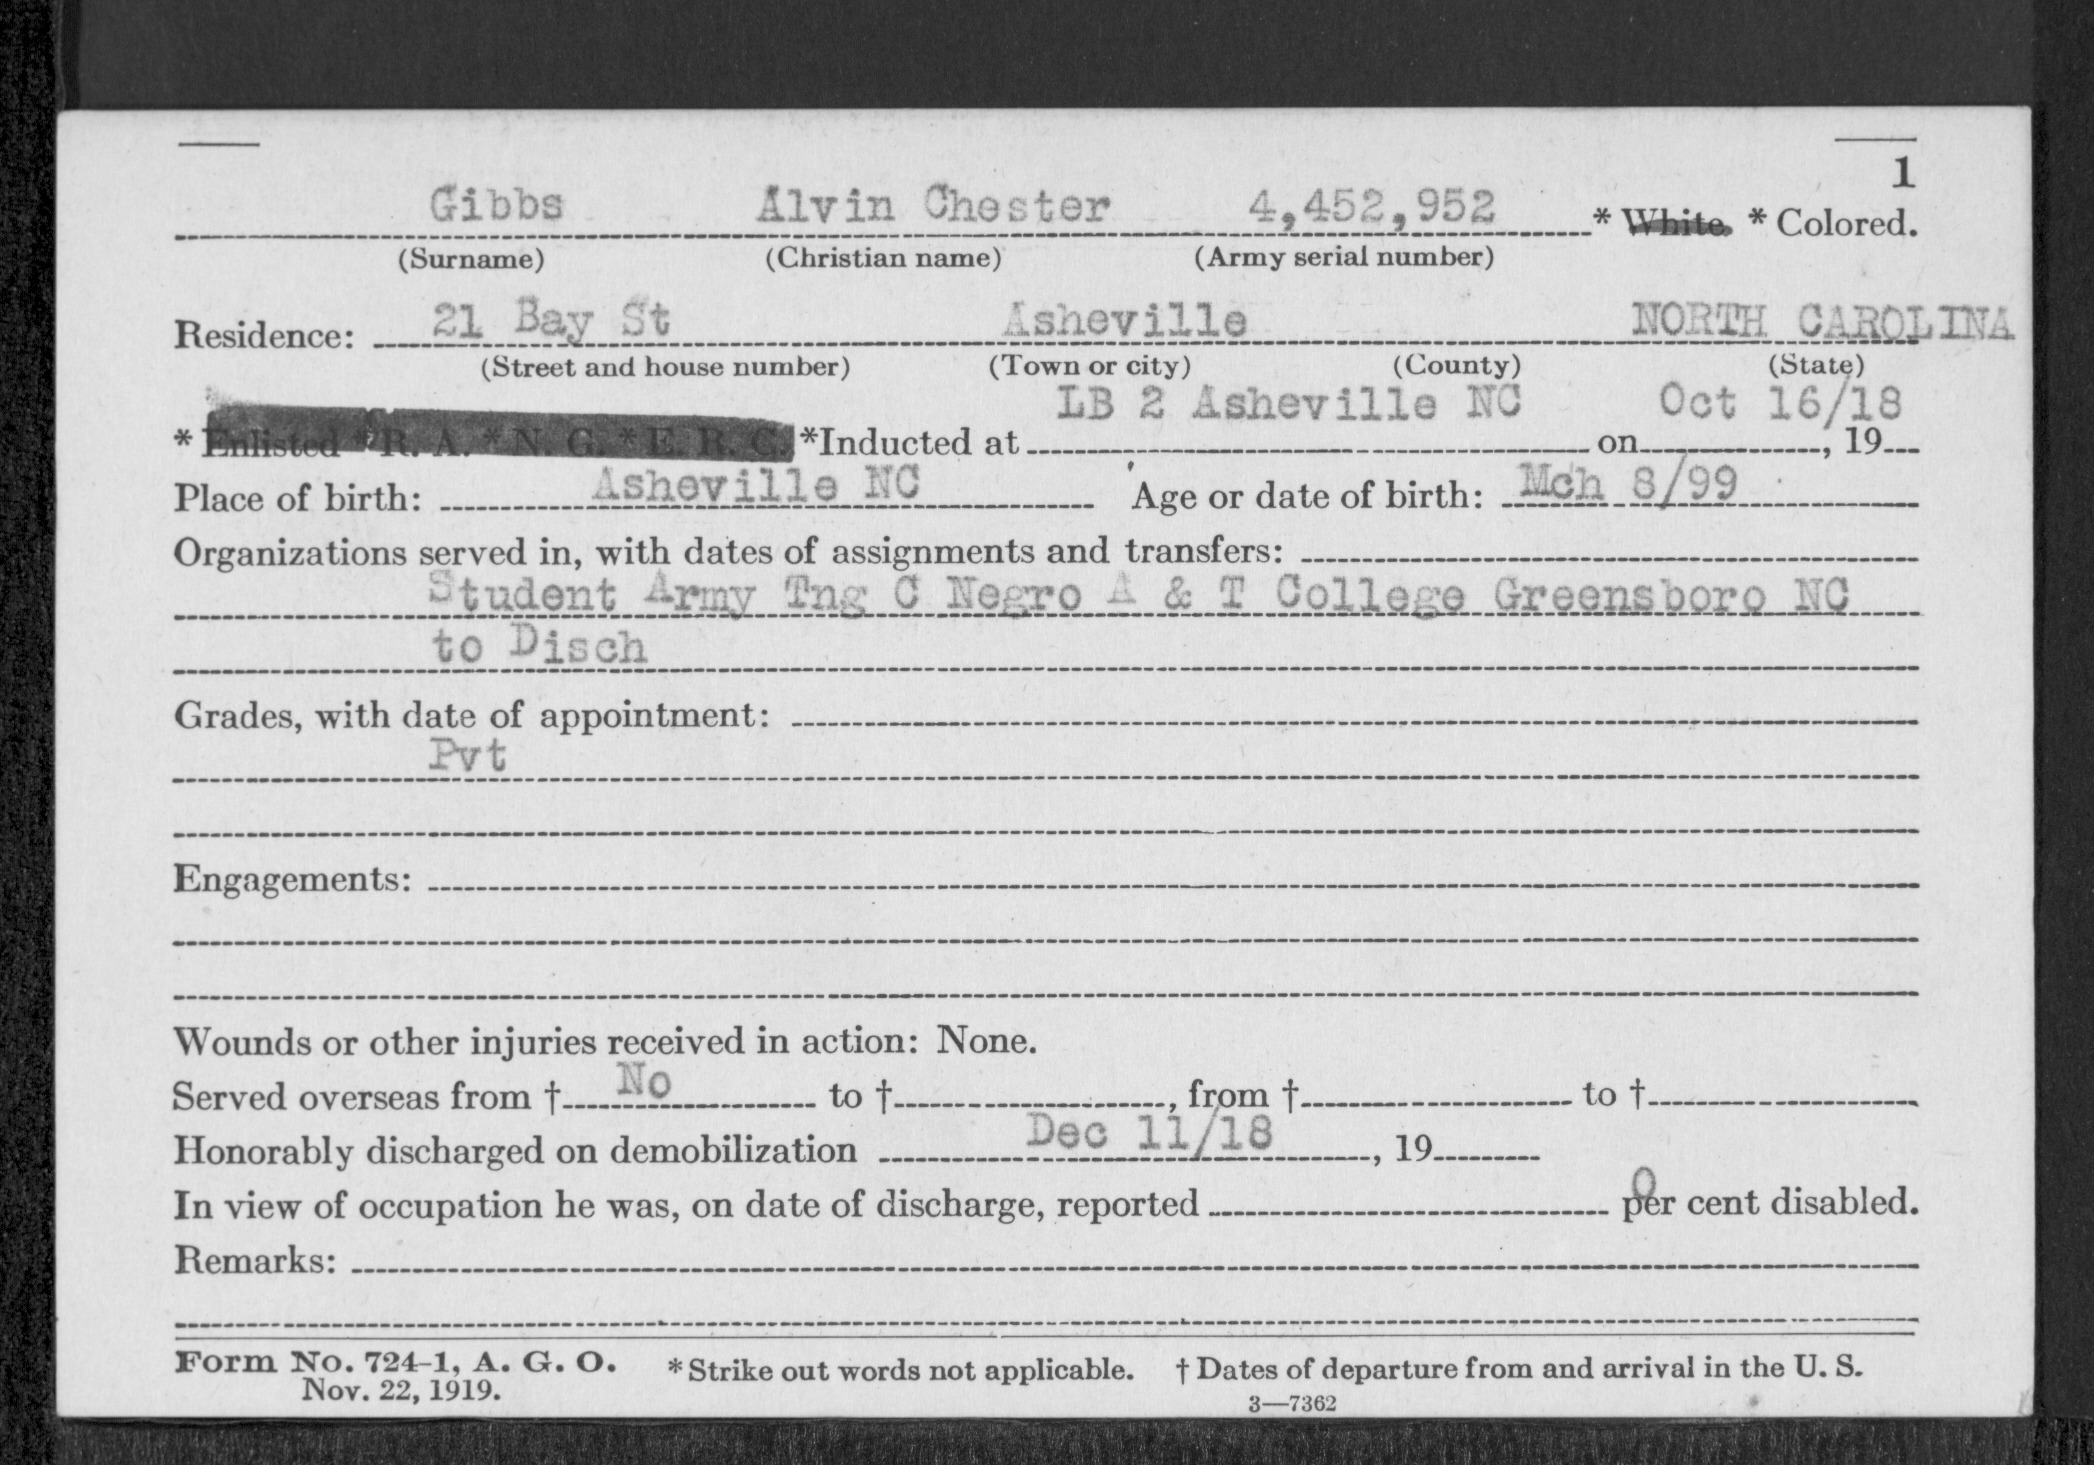 1
Gibbs Alvin Chester 4,452,952 * White. * Colored.
(Surname) (Christian name) (Army serial number)
Residence: 21 Bay St Asheville NORTH CAROLINA
(Street and house number) (Town or city) (County) (State)
* Enlisted * R. A. * N. G. * E. R. C. *Inducted at LB 2 Asheville NC on Oct 16/18, 19
Place of birth: Asheville NC Age or date of birth: Mch 8/99
Organizations served in, with dates of assignments and transfers:
Student Army Tng C Negro A & T College Greensboro NC
to Disch
Grades, with date of appointment:
Pvt
Engagements:
Wounds or other injuries received in action: None.
Served overseas from † No to †, from † to †
Honorably discharged on demobilization Dec 11/18, 19
In view of occupation he was, on date of discharge, reported 0 per cent disabled.
Remarks:
Form No. 724-1, A. G. O. * Strike out words not applicable. † Dates of departure from and arrival in the U. S.
Nov. 22, 1919. 3—7362